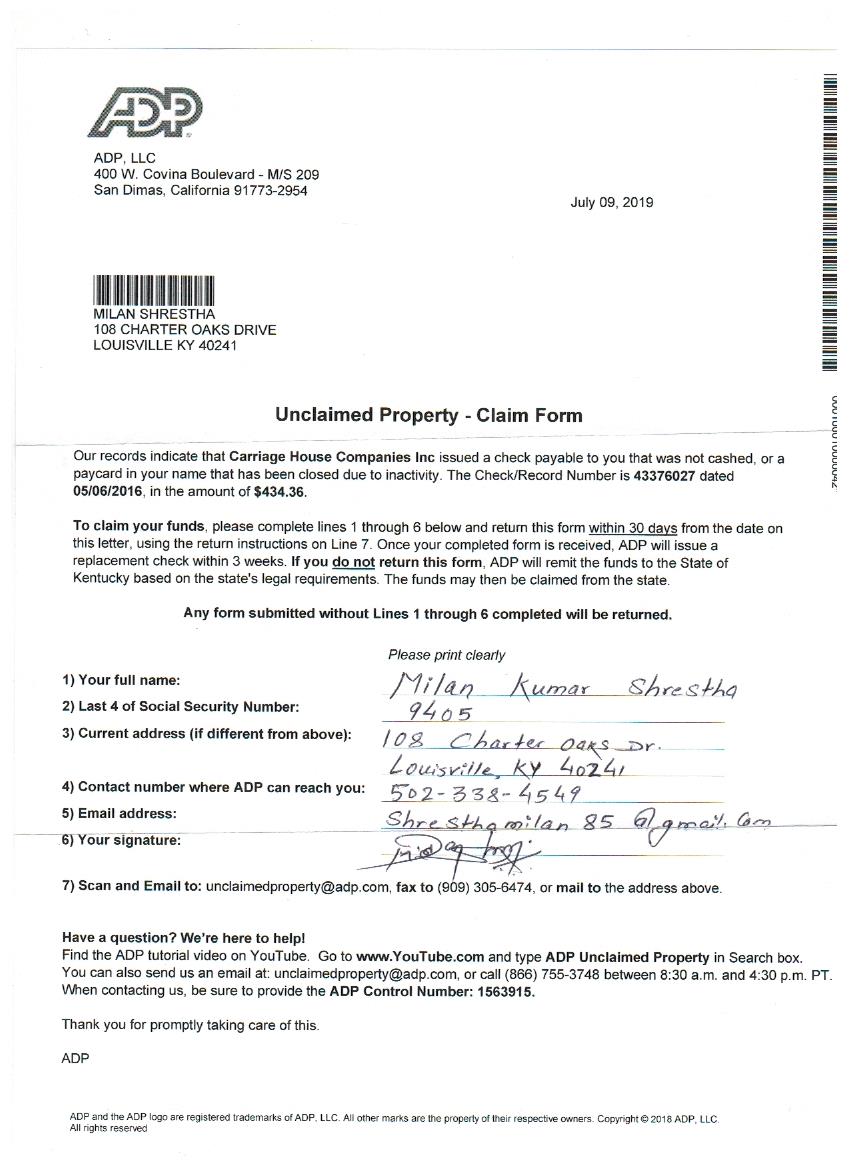 ADP
ADP, LLC
400 W. Covina Boulevard - M/S 209
San Dimas, California 91773-2954
July 09, 2019
MILAN SHRESTHA
108 CHARTER OAKS DRIVE
LOUISVILLE KY 40241
Unclaimed Property - Claim Form
Our records indicate that Carriage House Companies Inc issued a check payable to you that was not cashed, or a
paycard in your name that has been closed due to inactivity. The Check/Record Number is 43376027 dated
05/06/2016, in the amount of $434.36.
To claim your funds, please complete lines 1 through 6 below and return this form within 30 days from the date on
this letter, using the return instructions on Line 7. Once your completed form is received, ADP will issue a
replacement check within 3 weeks. If you do not return this form, ADP will remit the funds to the State of
Kentucky based on the state's legal requirements. The funds may then be claimed from the state.
Any form submitted without Lines 1 through 6 completed will be returned.
Please print clearly
1) Your full name: Milan Kumar Shrestha
2) Last 4 of Social Security Number: 9405
3) Current address (if different from above): 108 Charter Oaks Dr.
Louisville, KY 40241
4) Contact number where ADP can reach you: 502-338-4549
5) Email address: Shresthamilan 85 @gmail.com
6) Your signature:
7) Scan and Email to: unclaimedproperty@adp.com, fax to (909) 305-6474, or mail to the address above.
Have a question? We're here to help!
Find the ADP tutorial video on YouTube. Go to www.YouTube.com and type ADP Unclaimed Property in Search box.
You can also send us an email at: unclaimedproperty@adp.com, or call (866) 755-3748 between 8:30 a.m. and 4:30 p.m. PT.
When contacting us, be sure to provide the ADP Control Number: 1563915.
Thank you for promptly taking care of this.
ADP
ADP and the ADP logo are registered trademarks of ADP, LLC. All other marks are the property of their respective owners. Copyright © 2018 ADP, LLC.
All rights reserved